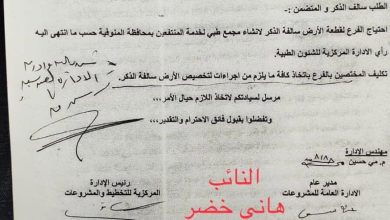 الطلب سالف الذكر و المتضمن :-
احتياج الفرع لقطعة الأرض سالفة الذكر لانشاء مجمع طبي لخدمة المنتفعين بمحافظة المنوفية حسب ما انتهى اليه
رأى الادارة المركزية للشئون الطبية.
تكليف المختصين بالفرع باتخاذ كافة ما يلزم من اجراءات لتخصيص الأرض سالفة الذكر.
مرسل لسيادتكم لاتخاذ اللازم حيال الأمر...
وتفضلوا بقبول فائق الاحترام والتقدير...
مهندس الادارة
م.مي حسين
مدير عام
الادارة العامة للمشروعات
رئيس الإدارة
المركزية للتخطيط والمشروعات
النائب
هانى خضر